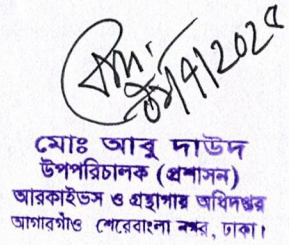 মোঃ আবু দাউদ
উপপরিচালক (প্রশাসন)
আরকাইভস ও গ্রন্থাগার অধিদপ্তর
আগারগাঁও শেরেবাংলা নগর, ঢাকা।